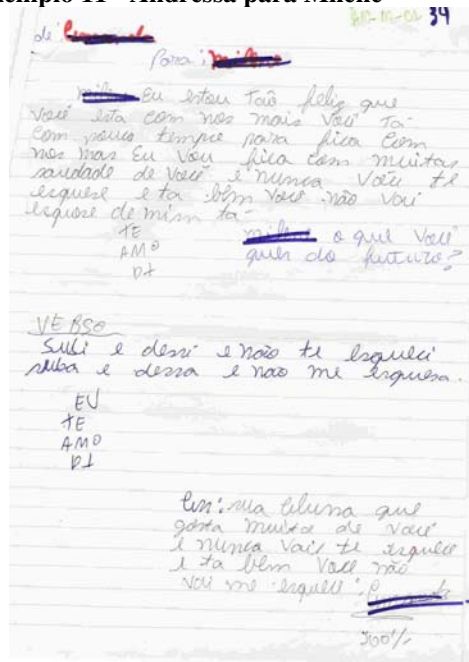 Exemplo 11 - Andressa para Milene
39
de:
Para:
Eu estou Tão feliz que
você esta com nos mais você Ta
com pouco tempo para fica com
nos mas Eu Vou fica com muitas
saudade de você e nunca Vou te
esquese e ta bem você não voi
esquese de mim ta
TE
AMO
DI
o que você
quer do futuro?
VERSO
Subi e desci e não te esqueci
suba e dessa e nao me esquesa.
EU
TE
AMO
DI
aluna que
gosta muito de você
e nunca Vais te esquece
e ta bem você não
voi me esquece
100%